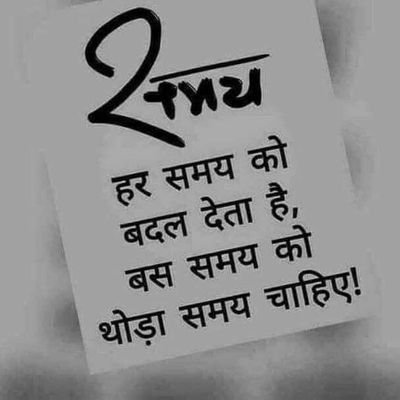 समय
हर समय को
बदल देता है,
बस समय को
थोड़ा समय चाहिए!